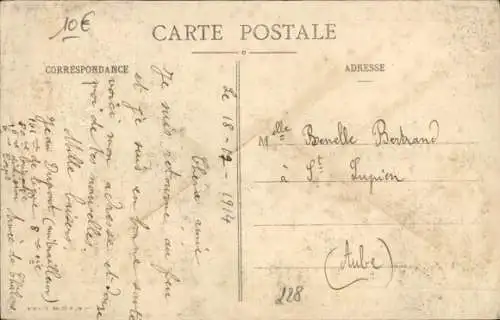 10€
CARTE POSTALE
CORRESPONDANCE
ADRESSE
Le 18-12-1914
Chère amie
Je suis retourné au feu
et je suis en bonne santé
voici mon adresse et donne
moi de tes nouvelles.
Mille baisers
Jean Dupont
101 de ligne 8e Cie
Mlle Benelle Bertrand
à St Lupien
(Aube)
228